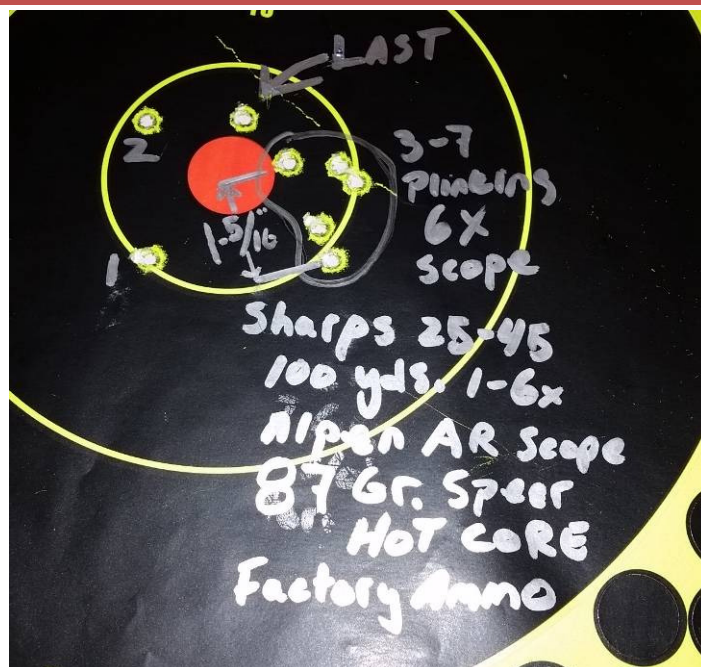 10
LAST
2
3-7
plinking
6X
scope
1-5/16"
1
Sharps 25-45
100 yds. 1-6x
Alpen AR Scope
87 Gr. Speer
HOT CORE
Factory Ammo